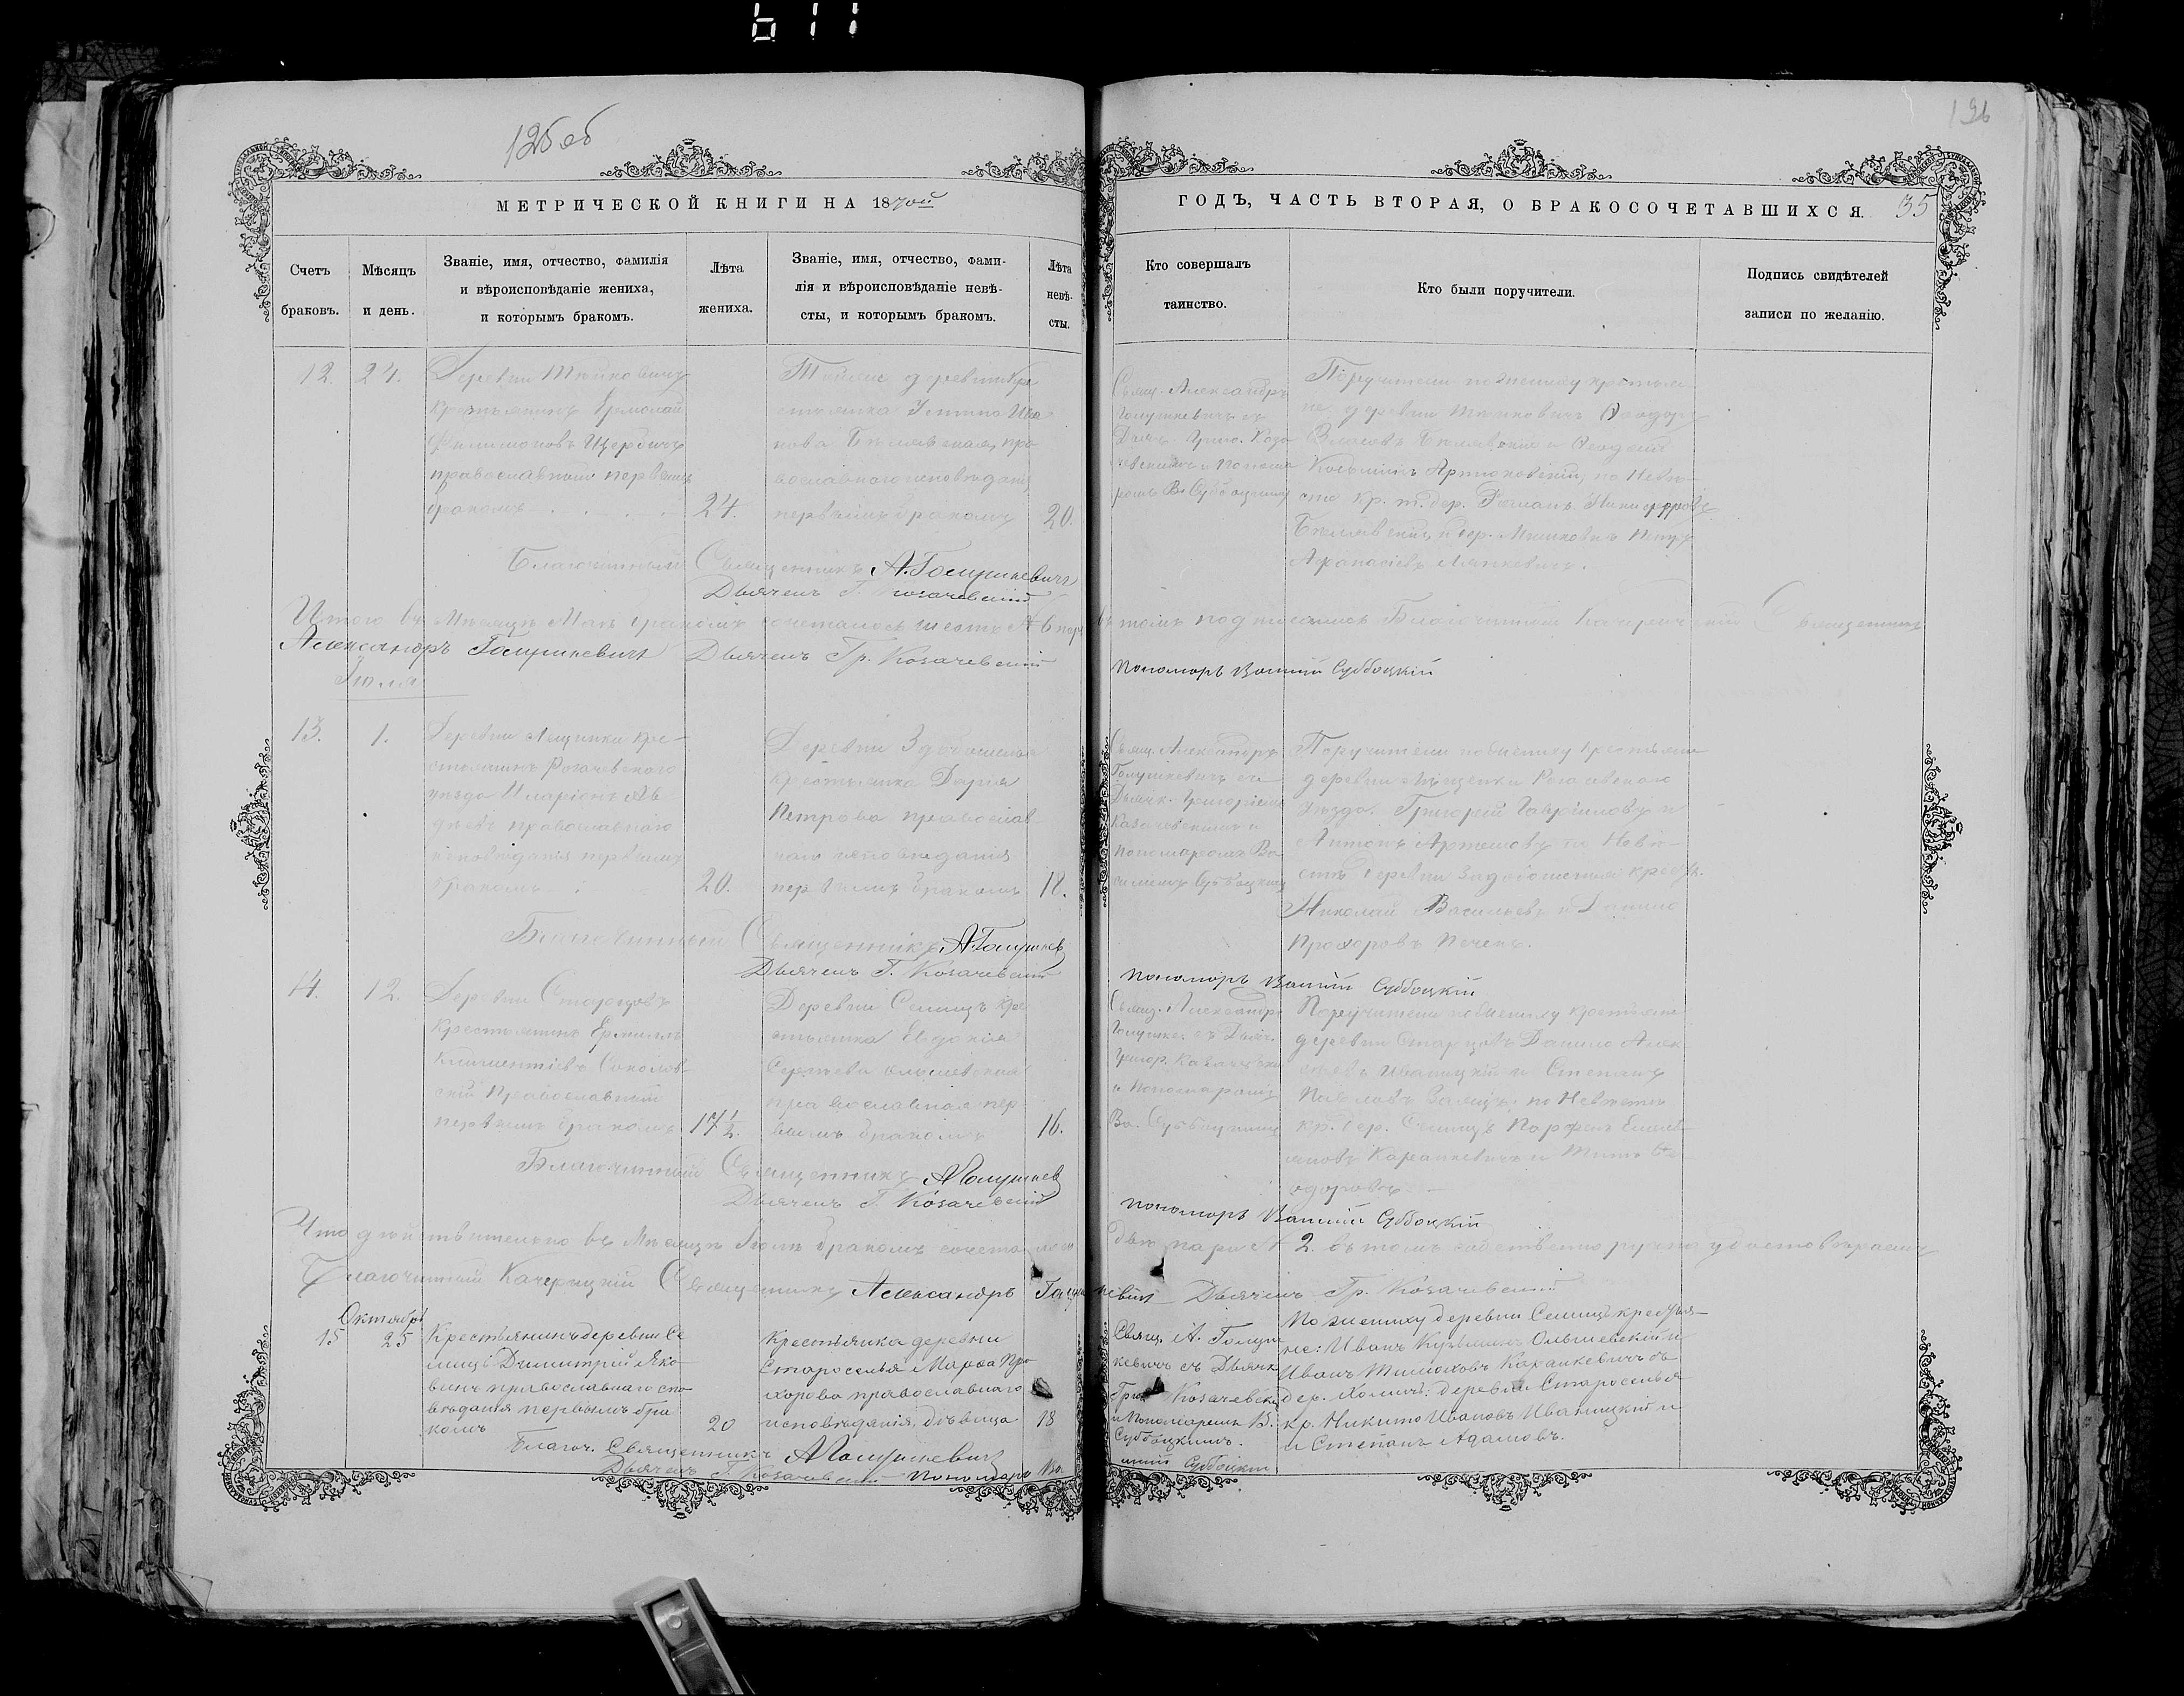 611
125 об
126
МЕТРИЧЕСКОЙ КНИГИ НА 1870ый
ГОДЪ, ЧАСТЬ ВТОРАЯ, О БРАКОСОЧЕТАВШИХСЯ. 35
Счетъ браковъ.
Мѣсяцъ и день.
Званіе, имя, отчество, фамилія
и вѣроисповѣданіе жениха,
и которымъ бракомъ.
Лѣта жениха.
Званіе, имя, отчество, фами-
лія и вѣроисповѣданіе невѣ-
сты, и которымъ бракомъ.
Лѣта невѣ-
сты.
Кто совершалъ
таинство.
Кто были поручители.
Подпись свидѣтелей
записи по желанію.
12. 24.
Деревни
крестьянинъ Ермолай
Филимоновъ Щербичъ
православный первымъ
бракомъ
24.
Тойже деревни кре
стьянка Ива
нова Бѣлявская, пра
вославнаго исповѣданія
первымъ бракомъ
20.
Свящ. Александръ
Голушкевичъ съ
Дьяч. Григо. Коза
чевскимъ и Понома
ремъ В. Субоцкимъ
Поручители по жениху крестья
не деревни Ѳеодоръ
Власовъ Бѣлявскій и
по Невѣ
стѣ кр. т. дер. Романъ Никифоровъ
Бѣлявскій и дер.
Афанасіевъ
Благочинный Священникъ А. Голушкевичъ
Дьячекъ Г. Козачевскій
Итого въ Мѣсяцѣ Маѣ бракомъ сочеталось шесть № 6 паръ
въ томъ подписались Благочинный Священникъ
Александръ Голушкевичъ Дьячекъ Гр. Козачевскій
Пономаръ Василій Субоцкій
Іюля
13. 1.
Деревни Лещинки кре-
стьянинъ Рогачевского
уѣзда Иларіонъ Ав
дѣевъ православнаго
исповѣданія первымъ
бракомъ
20.
Деревни
крестьянка Дарья
Петрова православ
наго исповѣданія
первымъ бракомъ
18.
Свящ. Александръ
Голушкевичъ съ
Дьячк. Григоріемъ
Казачевскимъ и
пономаремъ Ва
силіемъ Субоцкимъ
Поручители по жениху крестьяне
деревни Лещинки Рогачевского
уѣзда Григорій Гавриловъ и
Антонъ Артемовъ по Невѣ-
стѣ деревни крест.
Николай Васильевъ и Данило
Прохоровъ Печень.
Благочинный Священникъ А. Голушкев
Дьячекъ Г. Козачевскій
Пономаръ Василій Субоцкій
14. 12.
Деревни Старцовъ
Крестьянинъ Ермилъ
Климентіевъ Соколов-
скій Православный
первымъ бракомъ
17½.
Деревни Селищъ кре
стьянка Евдокія
Сергѣева Ольшевская
православная пер-
вымъ бракомъ
16.
Свящ. Александръ
Голушке. съ Дьяч.
Григор. Казачевск
и Пономаремъ
Ва. Субоцкимъ
Поручители по жениху крестьяне
деревни Старцовъ Данило Алек
сѣевъ Иваницкій и Степанъ
Павловъ по Невѣстѣ
кр. дер. Селищъ Парфенъ
Каранкевичъ и Титъ Ѳе
одоровъ
Благочинный Священникъ А. Голушкев
Дьячекъ Г. Козачевскій
Пономаръ Василій Субоцкій
Что дѣйствительно въ Мѣсяцѣ Іюлѣ бракомъ сочеталось
двѣ пары № 2. въ томъ собственноручно удостовѣряемъ
Благочинный Священникъ Александръ Голушкевичъ Дьячекъ Гр. Козачевскій
Октября
15 25
Крестьянинъ деревни Се
лищъ Димитрій Яко
влевъ православнаго испо
вѣданія первымъ бра
комъ
20
Крестьянка деревни
Староселья Марѳа Про
хорова православнаго
исповѣданія, дѣвица
18
Свящ. А. Голуш
кевичъ съ Дьячк
Григ Козачевски
и Пономаремъ В.
Субоцкимъ.
По жениху деревни Селищъ крестья-
не: Иванъ Кузьминъ Ольшевскій и
Иванъ Тимоховъ Каранкевичъ
деревни Староселья
кр. Никита Ивановъ Иваницкій и
и Степанъ Адамовъ.
Благоч. Священникъ А. Голушкевичъ
Дьячекъ Г. Козачевскій Пономаръ Ва.
силій Субоцкій